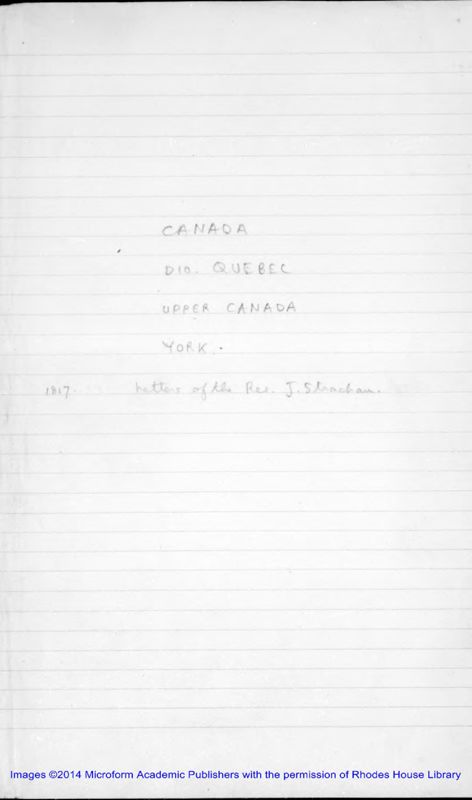 CANADA
DIO. QUEBEC
UPPER CANADA
YORK.
1817. Letters of the Rev. J. Strachan.
Images ©2014 Microform Academic Publishers with the permission of Rhodes House Library